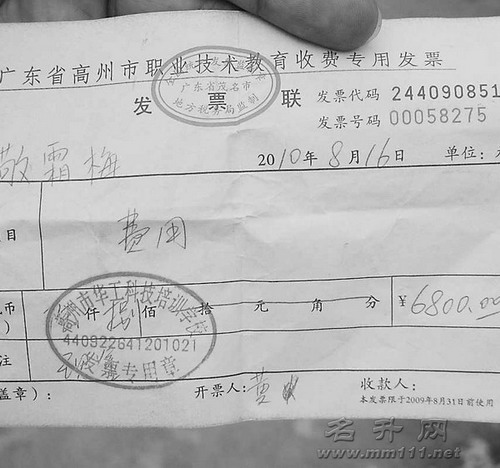 广东省高州市职业技术教育收费专用发票
广东省茂名市
地方税务局监制
发票联
发票代码 244090851
发票号码 00058275
霜梅
2010年8月16日 单位:
目 费用
币 仟 捌 佰 拾 元 角 分 ¥6800.00
高州市华工科技培训学校
440922641201021
专用章
注
盖章): 开票人: 黄 收款人:
本发票限于2009年8月31日前使用
名升网
www.mm111.net